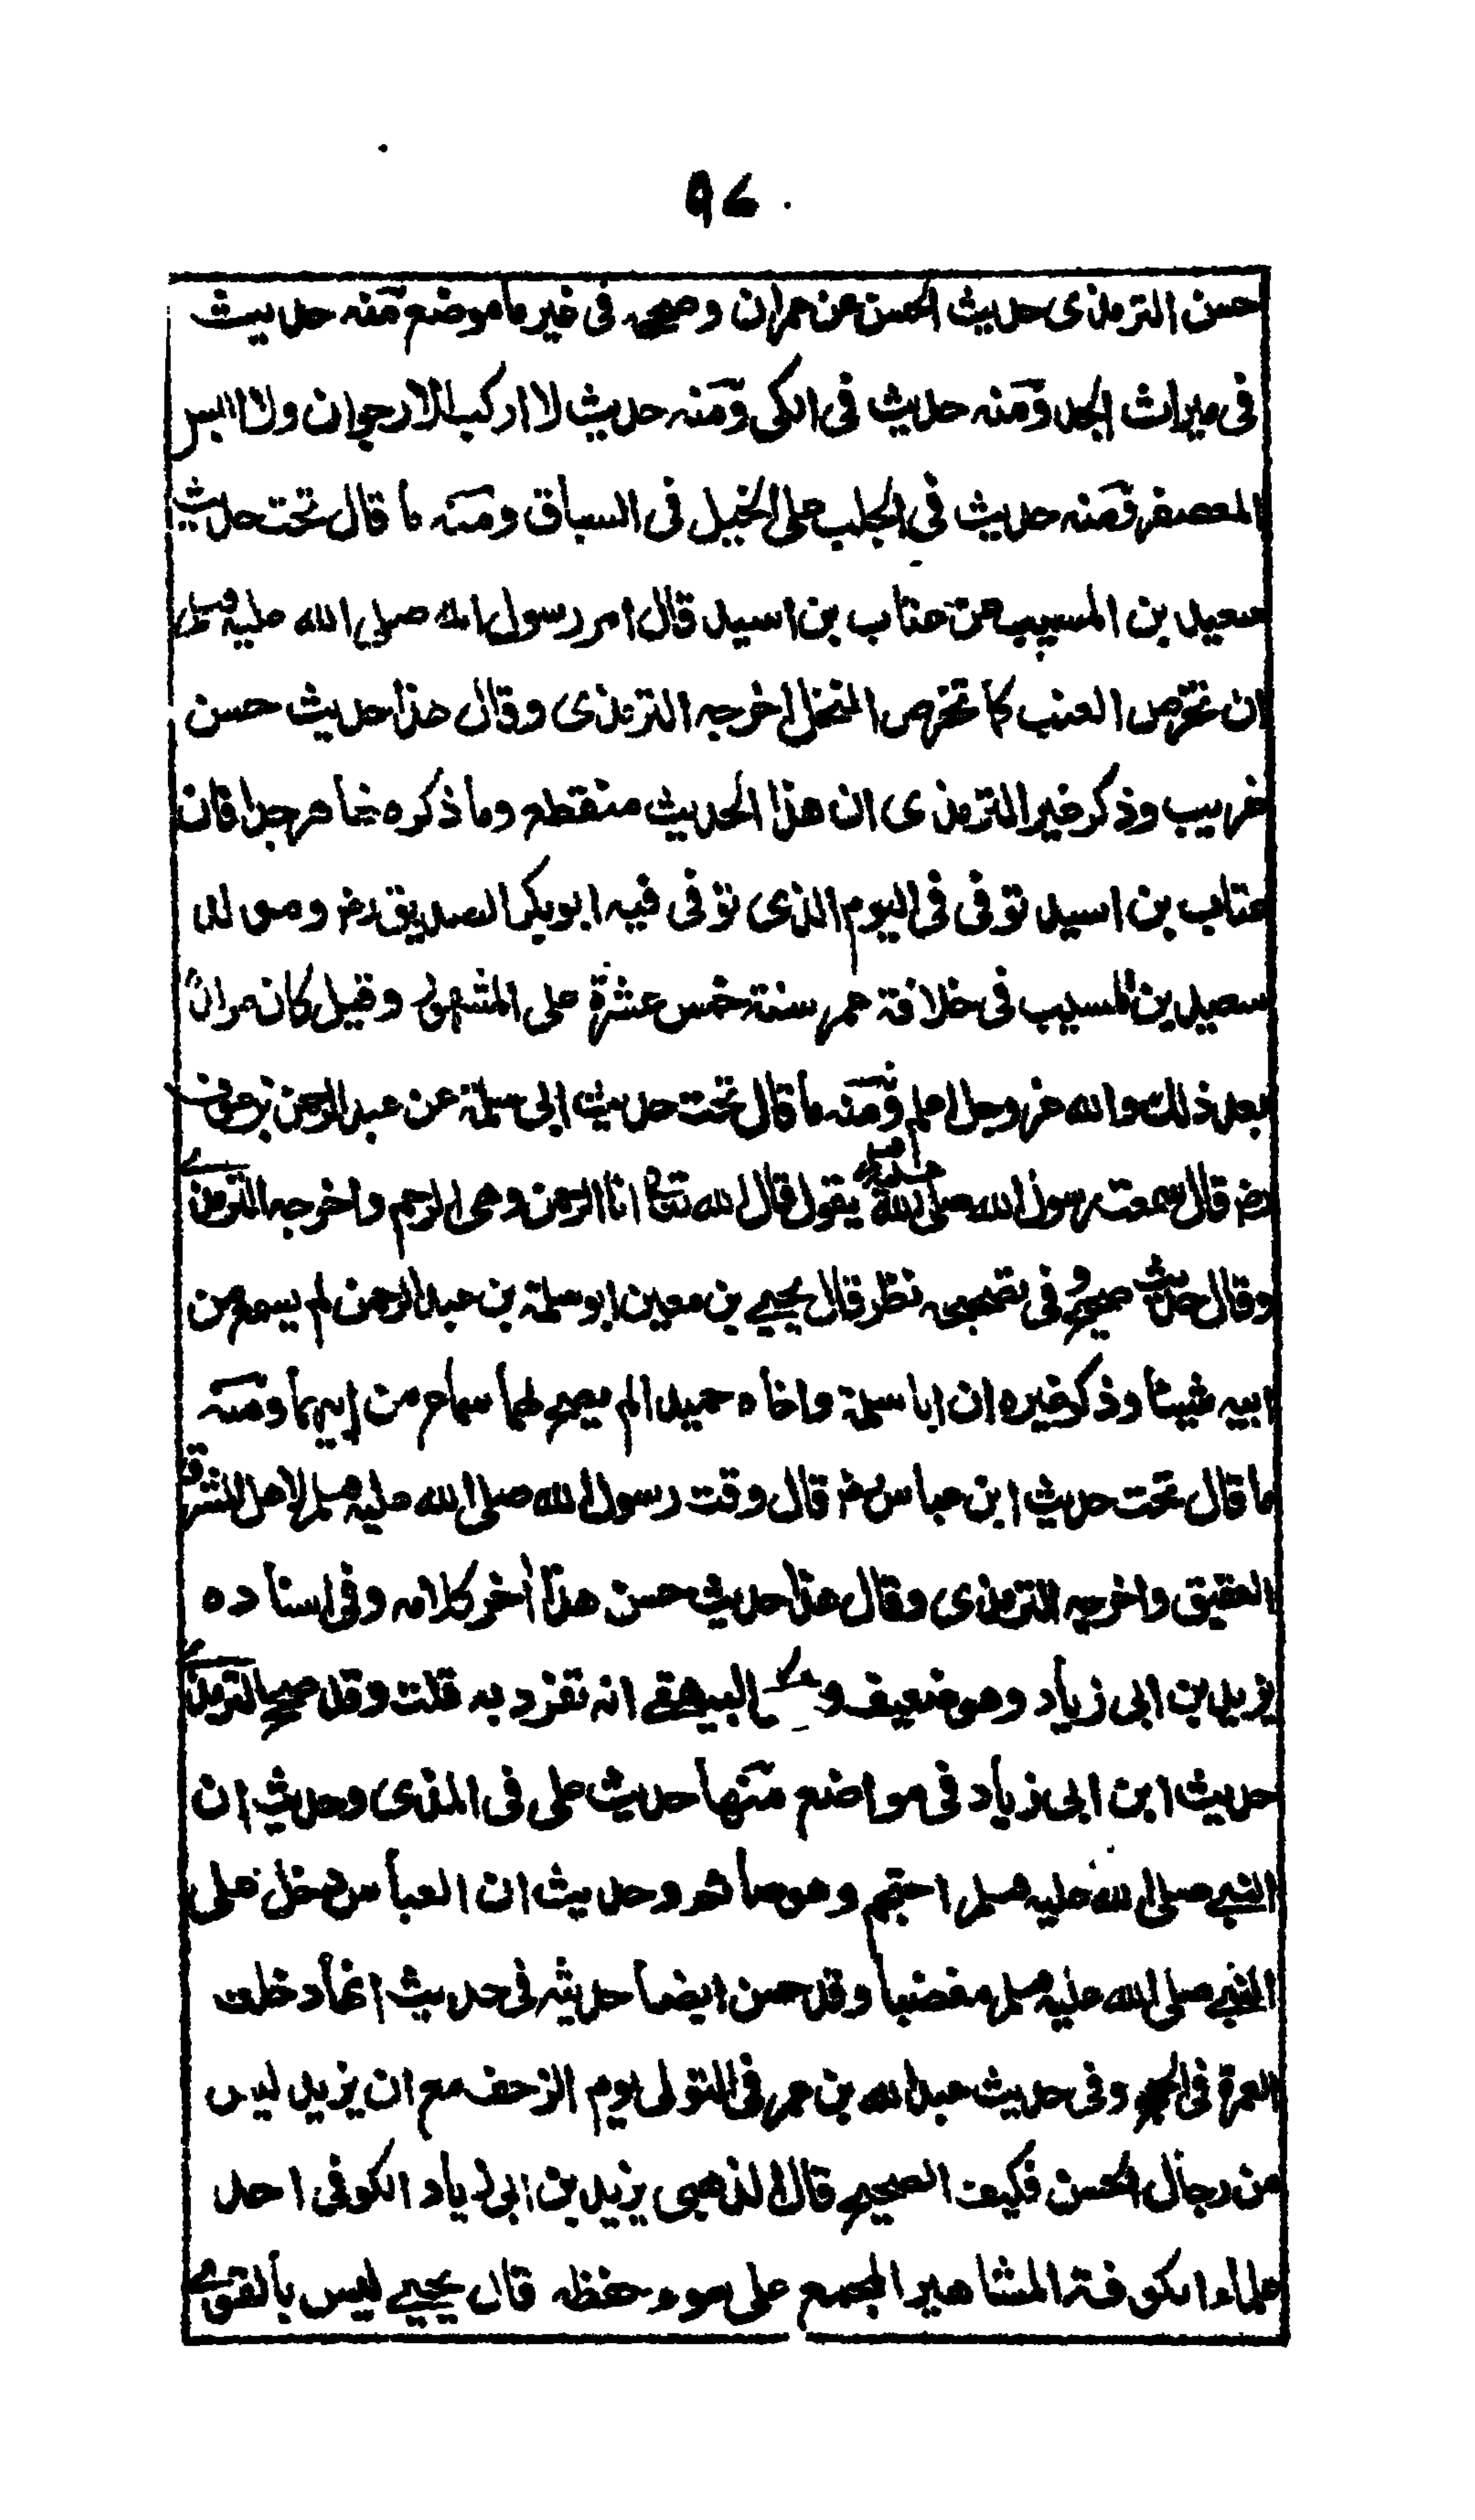 ٩٤
حسن الترمذى حديث الحسن عن عمران وصححه فى غير ما موضع منه حديث
فى ميراث الجد ومنه حديث فى الكى ومنه حديث لا اركب الارجوان ولا البس
المعصفر ومنه حديث فى الجلب على الخيل فى السباق ومنه ما قال تحت حديث
سعيد بن المسيب عن عتاب بن اسيد قال امر رسول الله صلى الله عليه وسلم
ان نخرص العنب كما نخرص النخل اخرجه الترمذى وقال هذا حديث حسن
غريب وذكر غير الترمذى ان هذا الحديث منقطع وما ذكره ظاهر جدا فان
عتاب بن اسيد توفى فى اليوم الذى توفى فيه ابو بكر الصديق رض ومولد
سعيد بن المسيب فى خلافة عمر سنة خمس عشرة على المشهور وقيل كان مولده
بعد ذلك والله عز وجل اعلم ومنه ما قال تحت حديث ابى سلمة عن عبد الرحمن بن عوف
رض قال سمعت رسول الله صلى الله عليه وسلم يقول قال الله تعالى انا الرحمن وهى الرحم واخرجه الترمذى
وقال حديث صحيح وفى تصحيحه نظر قال يحيى بن معين ابو سلمة بن عبد الرحمن لم يسمع من
ابيه شيئا وذكر غيره ان ابا سلمة واخاه حميدا لم يصح لهما سماع من ابيهما ومنه
ما قال تحت حديث ابن عباس رض قال وقت رسول الله صلى الله عليه وسلم لاهل المشرق
العقيق واخرجه الترمذى وقال هذا حديث حسن هذا اخر كلامه وفى اسناده
يزيد بن ابى زياد وهو ضعيف وذكر البيهقى انه تفرد به قلت وقد صحح الترمذى
حديث ابن ابى زياد فى مواضع منها حديث على فى المذى وحديث ان
النبى صلى الله عليه وسلم احتجم وهو صائم وحديث ان العباس دخل على
النبى صلى الله عليه وسلم مغضبا وقد حسن ايضا حديثه فى حديث انما دخلت
العمرة فى الحج وفى حديث عبد الله بن عمر فى التولى يوم الزحف مع ان يزيد ليس
من رجال الحسن فكيف الصحيح قال الذهبى يزيد بن ابى زياد الكوفى احد
علماء الكوفة المشاهير المجمع على سوء حفظه قال يحيى ليس بالقوى